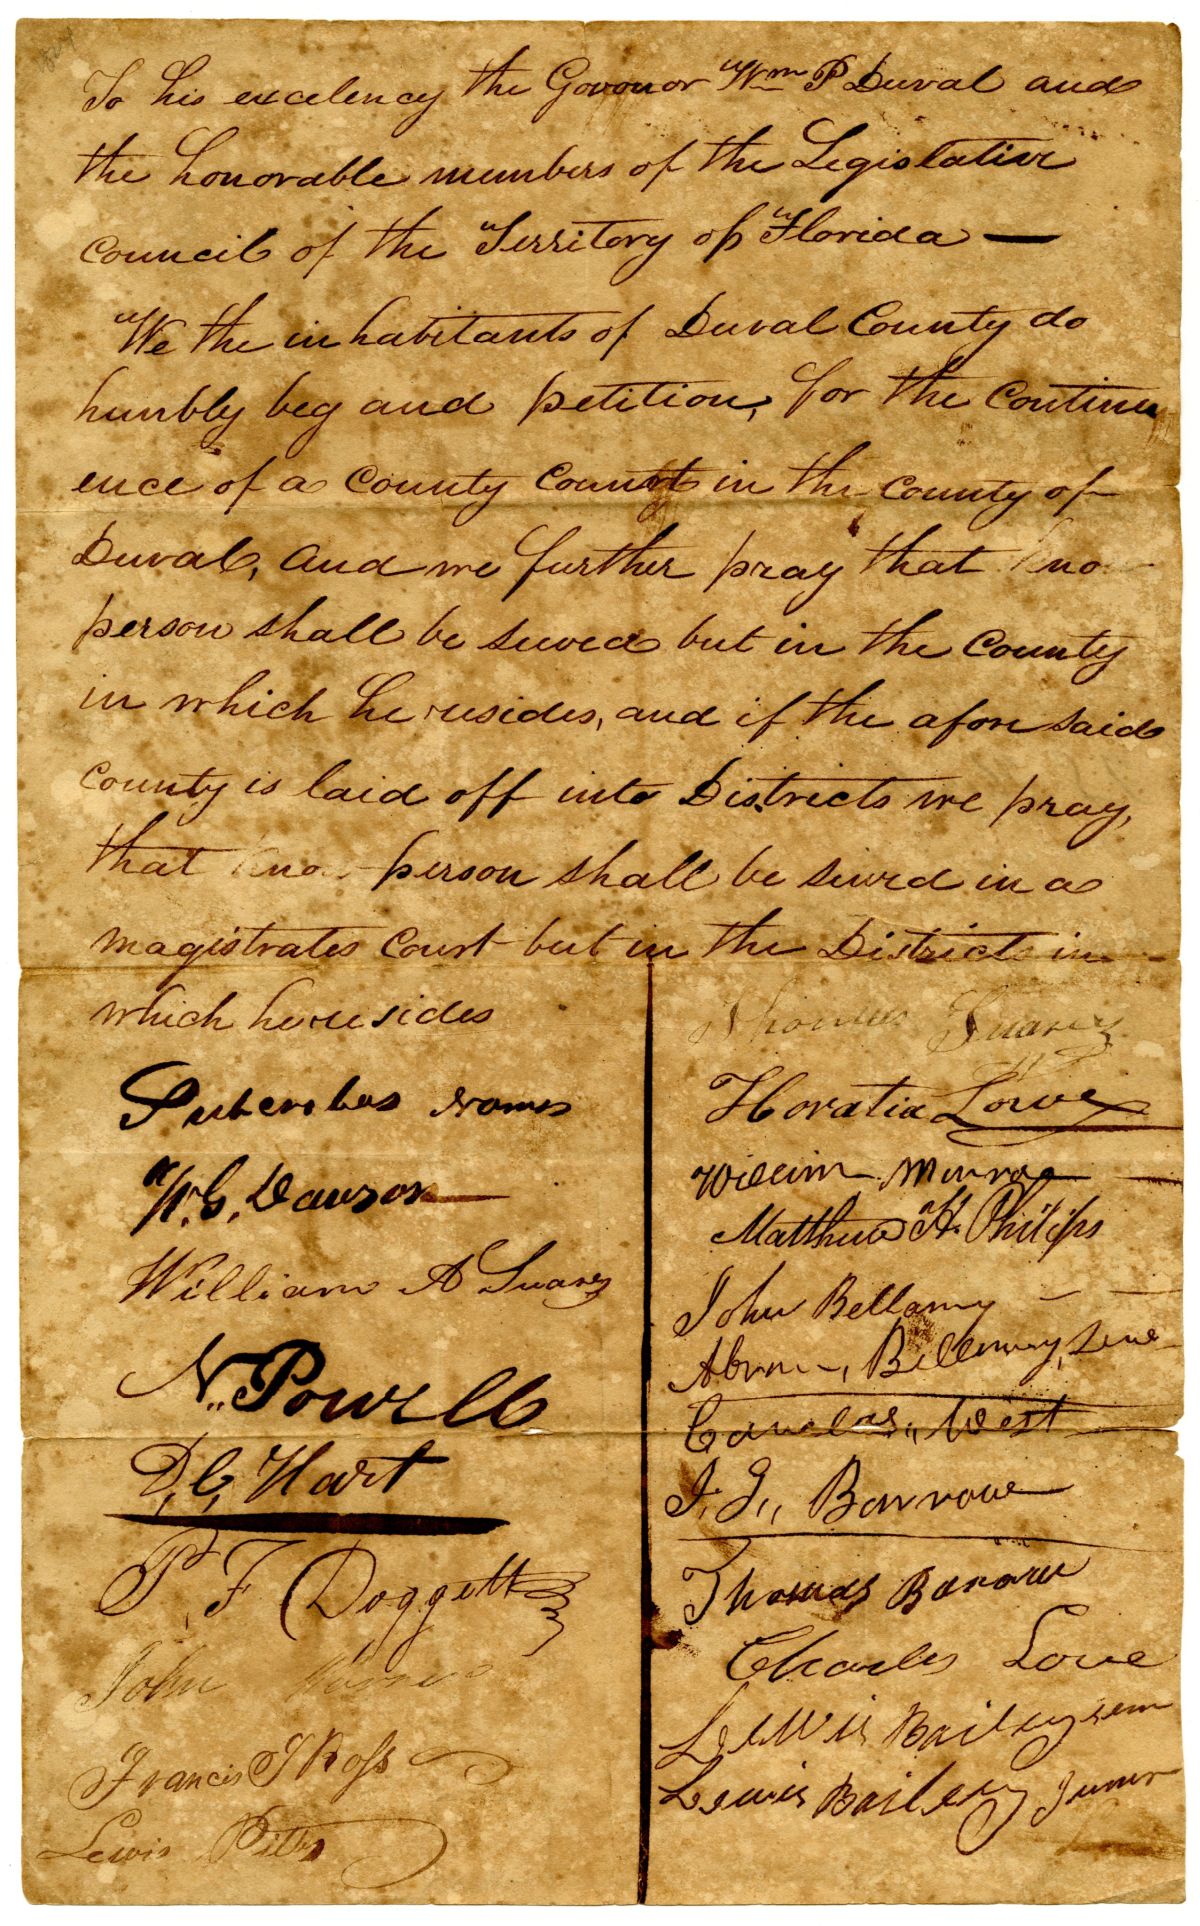 To his excelency the Govonor Wm P Duval and
the honorable members of the Legislative
council of the Territory of Florida —
We the inhabitants of Duval County do
humbly beg and petition, for the Continu
ence of a County Court in the County of
Duval, and we further pray that no
person shall be sued but in the County
in which he resides, and if the afore said
County is laid off into Districts we pray,
that no person shall be sued in a
magistrates Court but in the Districts in
which he resides
Subcribers Names
W. G. Dawson
William A Suarez
N. Powell
D. C. Hart
P. F Doggett
John
Francis J Ross
Lewis Pitts
Thomas Suarez
Horatia Lowe
William Munroe
Matthew H. Philips
John Bellamy
Abram, Bellamy,
West
J. G,, Barrowe
Thomas Barrow
Charles Lowe
Lewis Bailey sen
Lewis Bailey Junr